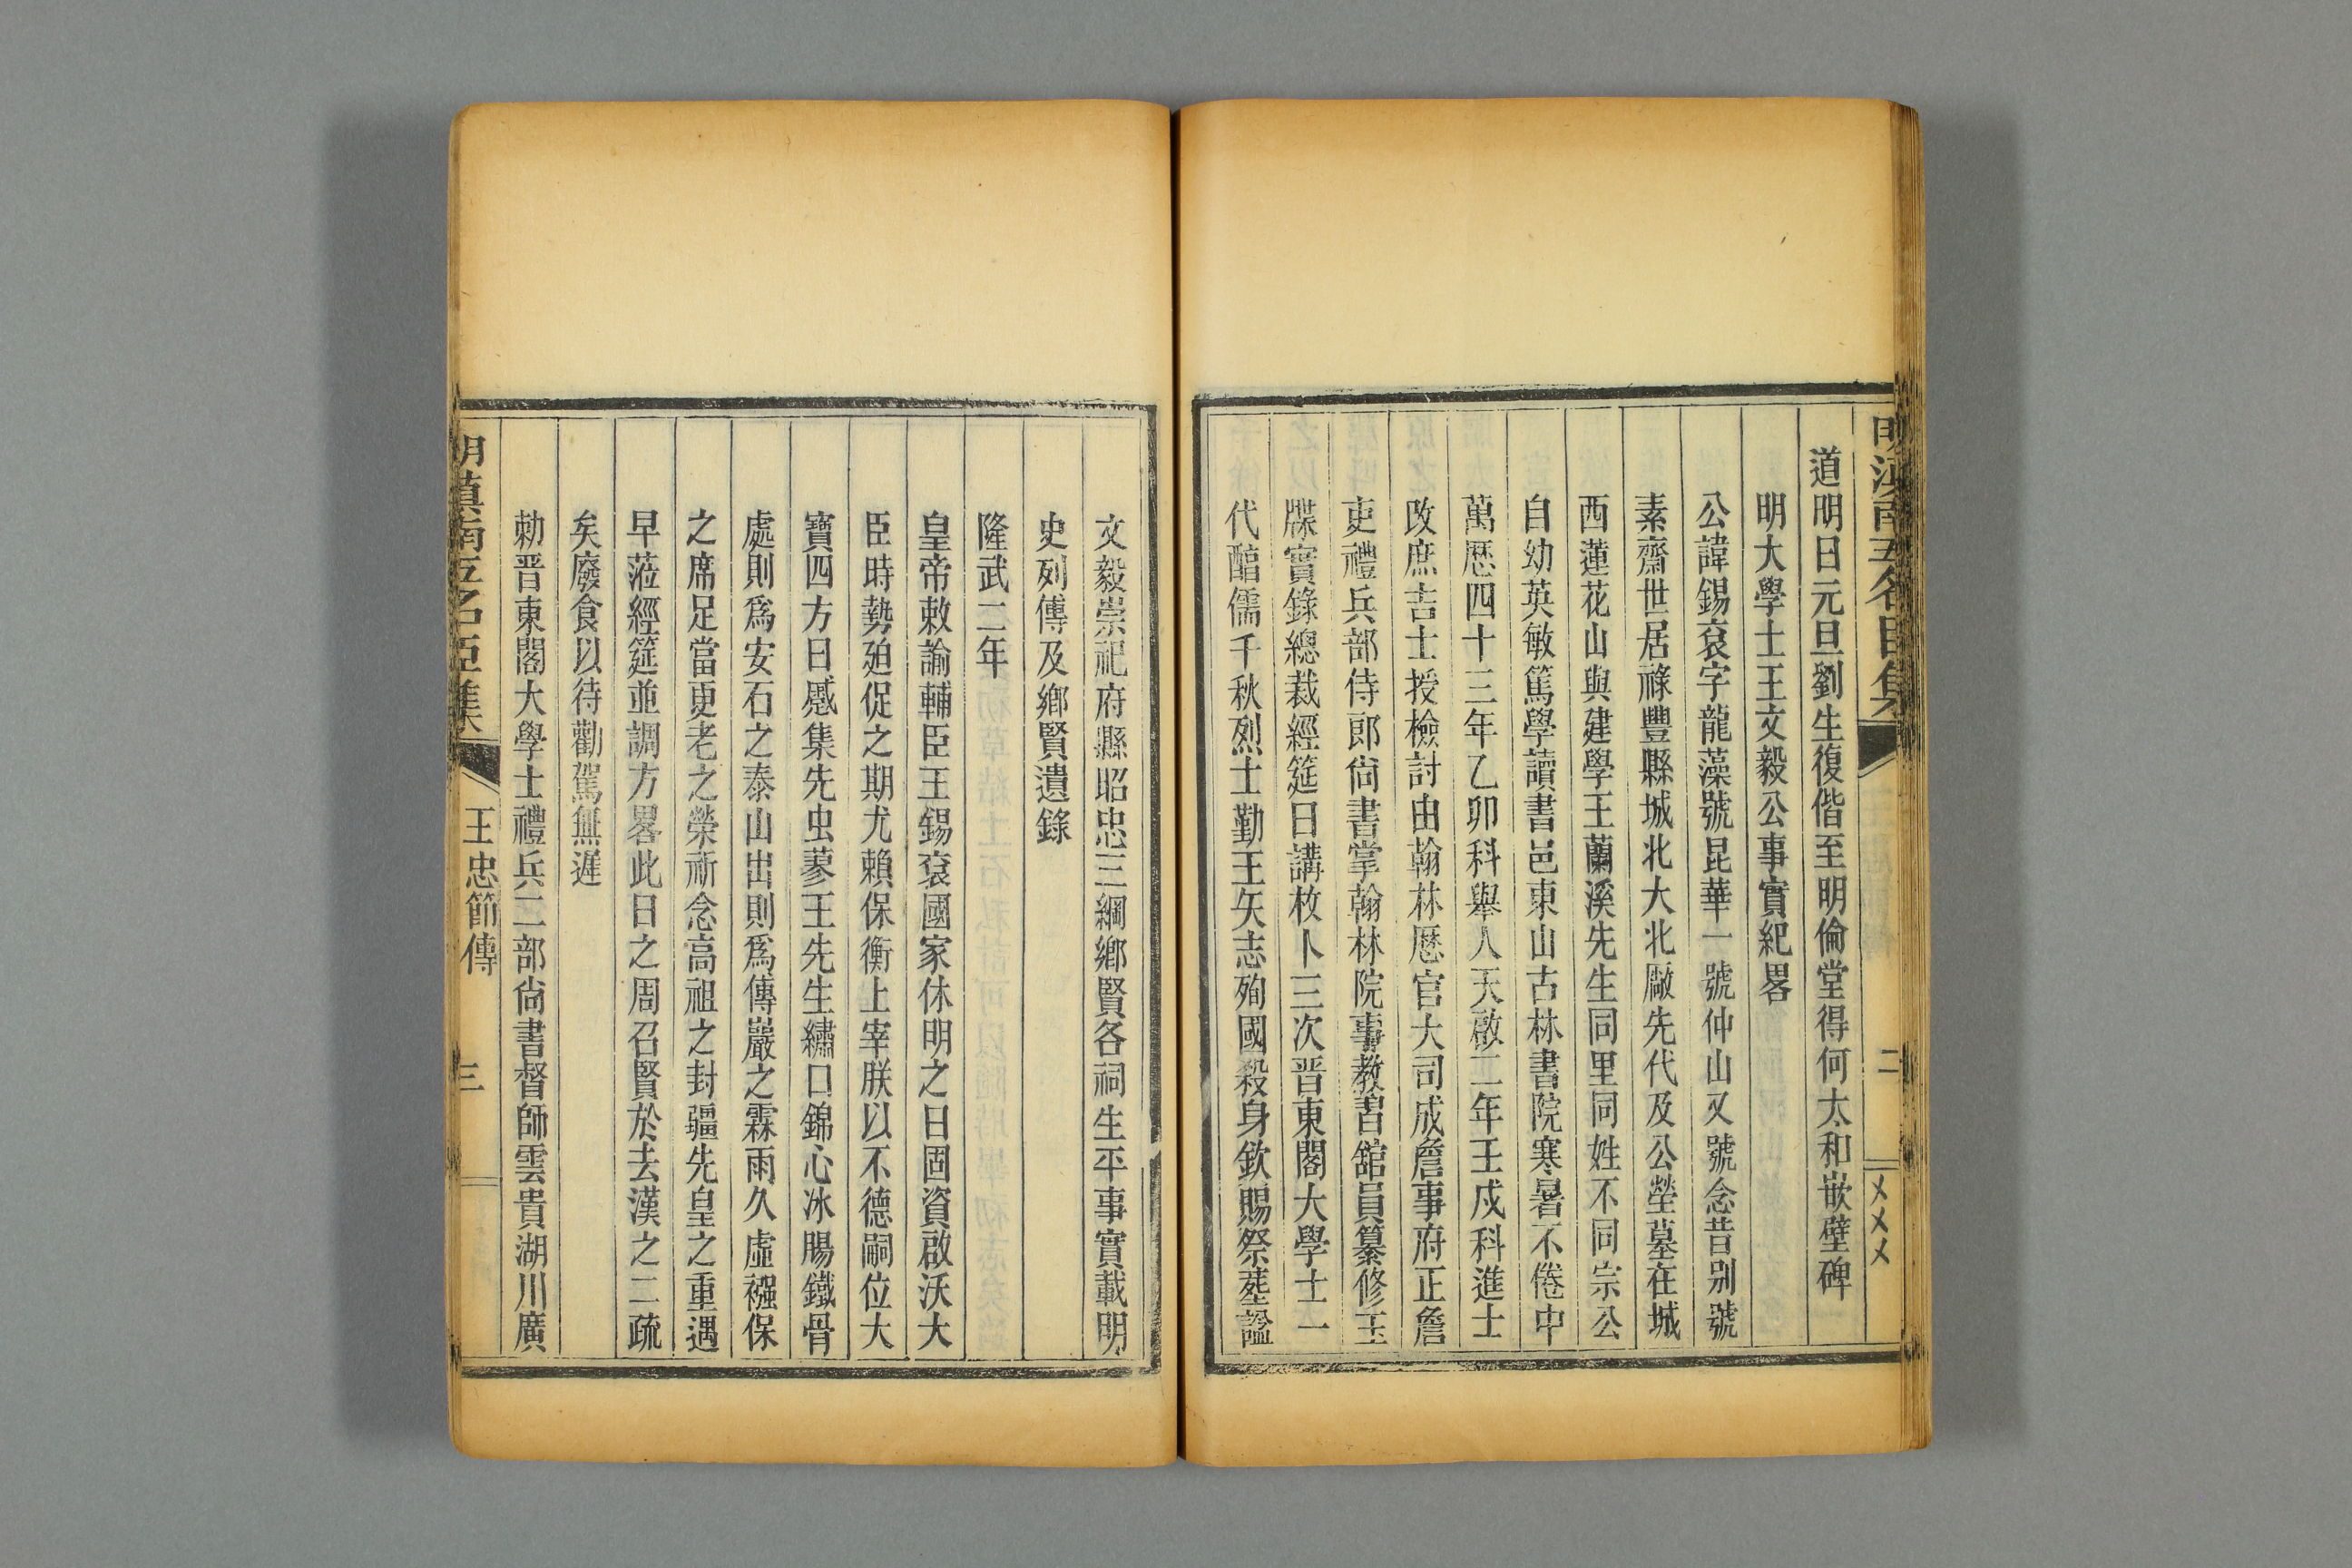 明滇南五名臣集
二
道明日元旦劉生復偕至明倫堂得何太和嵌壁碑
明大學士王文毅公事實紀畧
公諱錫袞字龍藻號昆華一號仲山又號念昔别號
素齋世居祿豐縣城北大北厰先代及公塋墓在城
西蓮花山與建學王蘭溪先生同里同姓不同宗公
自幼英敏篤學讀書邑東山古林書院寒暑不倦中
萬厯四十三年乙卯科舉人天啟二年壬戌科進士
改庶吉士授檢討由翰林厯官大司成詹事府正詹
吏禮兵部侍郎尙書掌翰林院事教習舘員纂修玉
牒實錄總裁經筵日講枚卜三次晋東閣大學士一
代醕儒千秋烈士勤王矢志殉國殺身欽賜祭葬諡
文毅崇祀府縣昭忠三綱鄉賢各祠生平事實載明
史列傳及鄉賢遺錄
隆武二年
皇帝敕諭輔臣王錫袞國家休明之日固資啟沃大
臣時勢廹促之期尤賴保衡上宰朕以不德嗣位大
寶四方日慼集先虫蓼王先生繡口錦心冰腸鐵骨
處則爲安石之泰山出則爲傳巖之霖雨久虛襁保
之席足當更老之榮祈念高祖之封疆先皇之重遇
早蒞經筵並調方畧此日之周召賢於去漢之二疏
矣廢食以待勸駕無遲
勅晋東閣大學士禮兵二部尙書督師雲貴湖川廣
明滇南五名臣集
王忠節傳
三